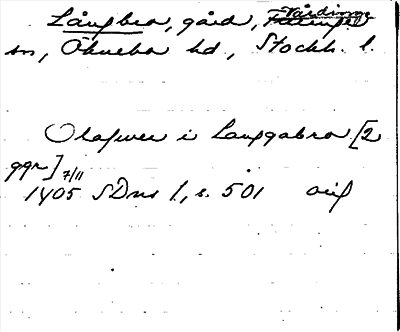 Långbro, gård, Vårdinge
sn, Öknebo hd, Stockh. l.
Olafwer i Langgabro [2
ggr] 7/11
1405 SDns 1, s. 501 orig